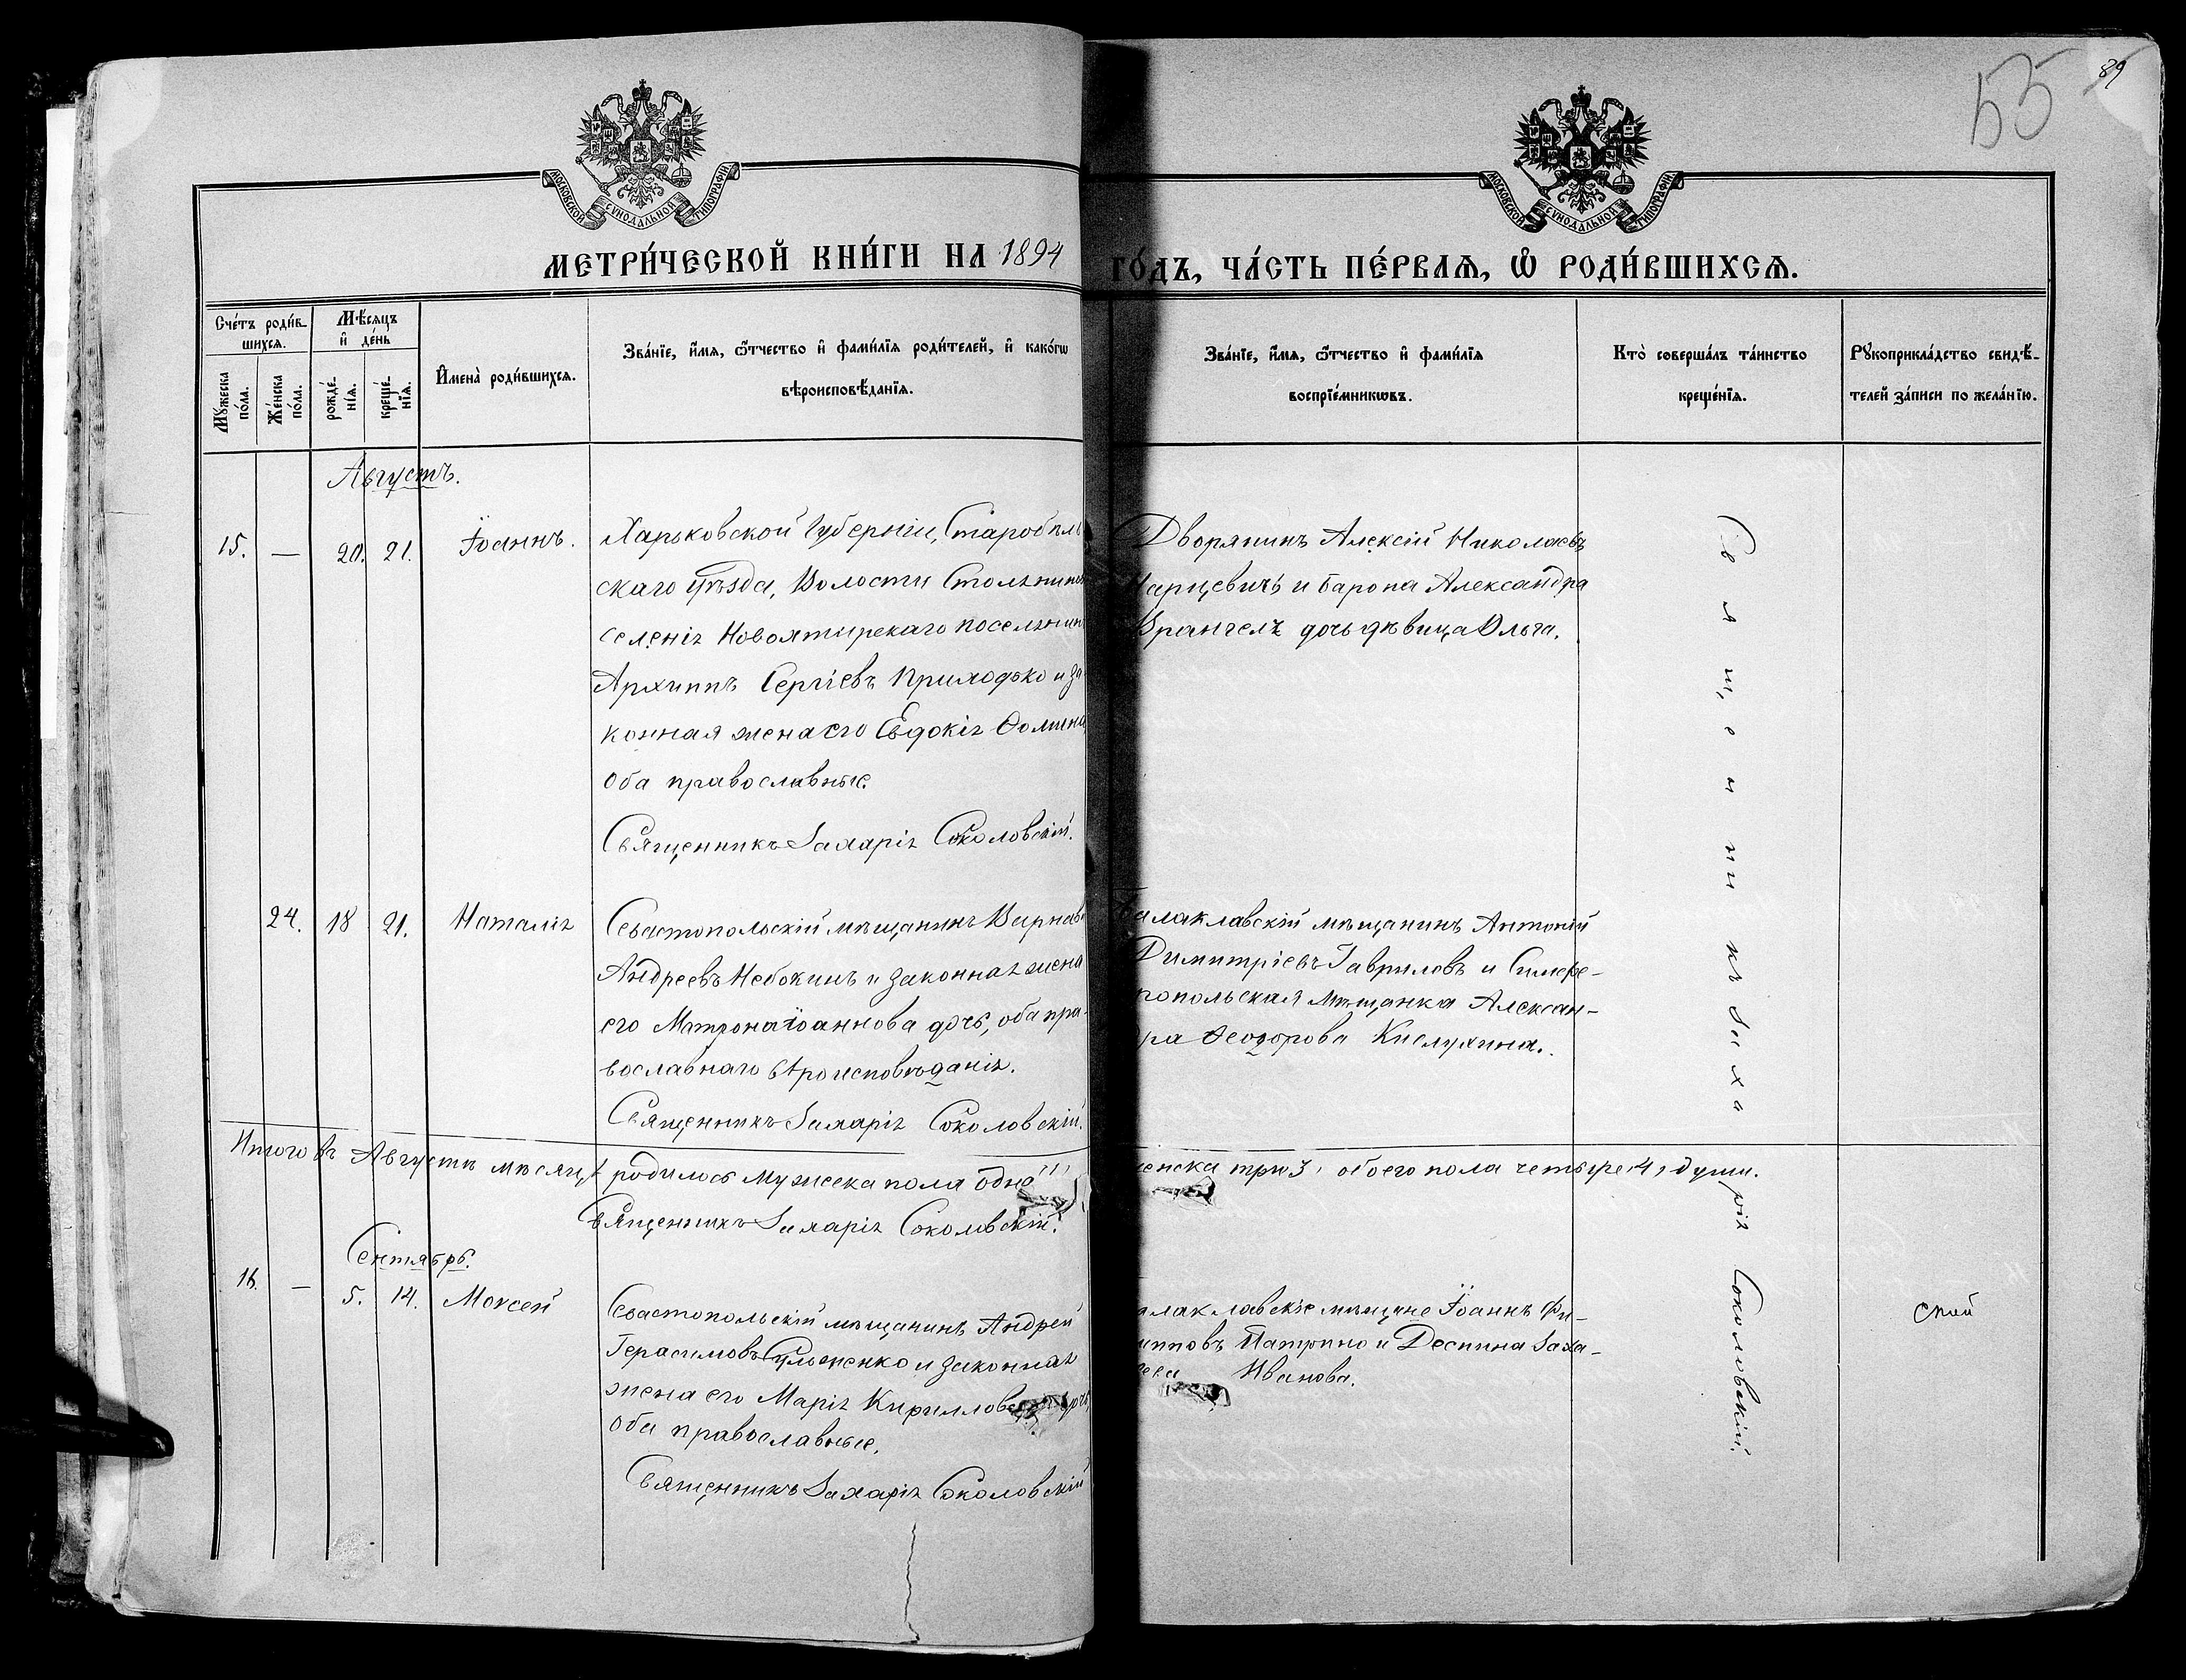 55
89
МОСКОВСКОЙ СѴНОДАЛЬНОЙ ТИПОГРАФІИ
МОСКОВСКОЙ СѴНОДАЛЬНОЙ ТИПОГРАФІИ
МЕТРИ́ЧЕСКОЙ КНИ́ГИ НА 1894 ГО́ДЪ, ЧА́СТЬ ПЕ́РВАЯ, Ѡ҆ РОДИ́ВШИХСЯ.
Сче́тъ роди́в-
шихся.
Мꙋ́жеска
по́ла.
Же́нска
по́ла.
Мѣ́сяцъ
и҆ де́нь
рожде́-
нїя.
креще́-
нїя.
И҆мена̀ роди́вшихся.
Зва́нїе, и҆́мя, ѻ҆́тчество и҆ фами́лїя роди́телей, и҆ како́гѡ
вѣроисповѣ́данїя.
Зва́нїе, и҆́мя, ѻ҆́тчество и҆ фами́лїя
воспрїе́мникѡвъ.
Кто̀ соверша́лъ та́инство
креще́нїя.
Рꙋкоприкла́дство свидѣ́-
телей за́писи по жела́нїю.
Августъ.
15. — 20. 21. Іоаннъ.
Харьковской Губерніи, Старобѣль
скаго уѣзда, Волости
селенія
Архиппъ Сергіевъ Приходько и за
конная жена его Евдокія Ѳомина
оба православные.
Священникъ Захарія Соколовскій.
Дворянинъ Алексій Николаевъ
и барона Александра
Врангеля дочь дѣвица Ольга.
24. 18 21. Наталія
Севастопольскій мѣщанинъ Варнава
Андреевъ Небокинъ и законная жена
его Матрона Іоаннова дочь, оба пра-
вославнаго вѣроисповѣданія.
Священникъ Захарія Соколовскій.
Балаклавскій мѣщанинъ Антоній
Димитріевъ Гавриловъ и Симфе-
ропольская мѣщанка Алексан-
ра Ѳеодорова Кислухина.
Итого въ Августѣ мѣсяцѣ родилось мужеска пола одно "1"
женска три 3, обоего пола четыре 4, души.
Священникъ Захарія Соколовскій.
Сентябрь.
16. — 5. 14. Моисей
Севастопольскій мѣщанинъ Андрей
Герасимовъ и законная
жена его Марія Кириллова дочь,
оба православные.
Священникъ Захарія Соколовскій
алаклавскіе мѣщане Іоаннъ Фи-
липповъ и Деспина Заха-
Иванова.
Священникъ Захарія Соколовскій.
ской